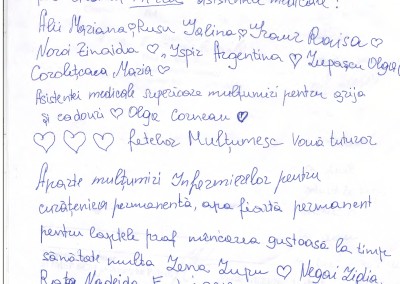 asistente medicale:
Alii Mariana ♡ Rusu Galina ♡ Raisa ♡
Noroi Zinaida ♡, Ispir Argentina ♡ Lupașcu Olga
Maria ♡
Asistentei medicale superioare mulțumiri pentru grija
și cadouri ♡ Olga Cornean ♡
♡ ♡ ♡ fetelor Mulțumesc Vouă tuturor
Aparte mulțumiri Infermierelor pentru
curățenia permanentă, apa fiartă permanent
pentru laptele praf mâncarea gustoasă la timp
sănătate multa Lena Lupu ♡ Negai Lidia,
Nadejda